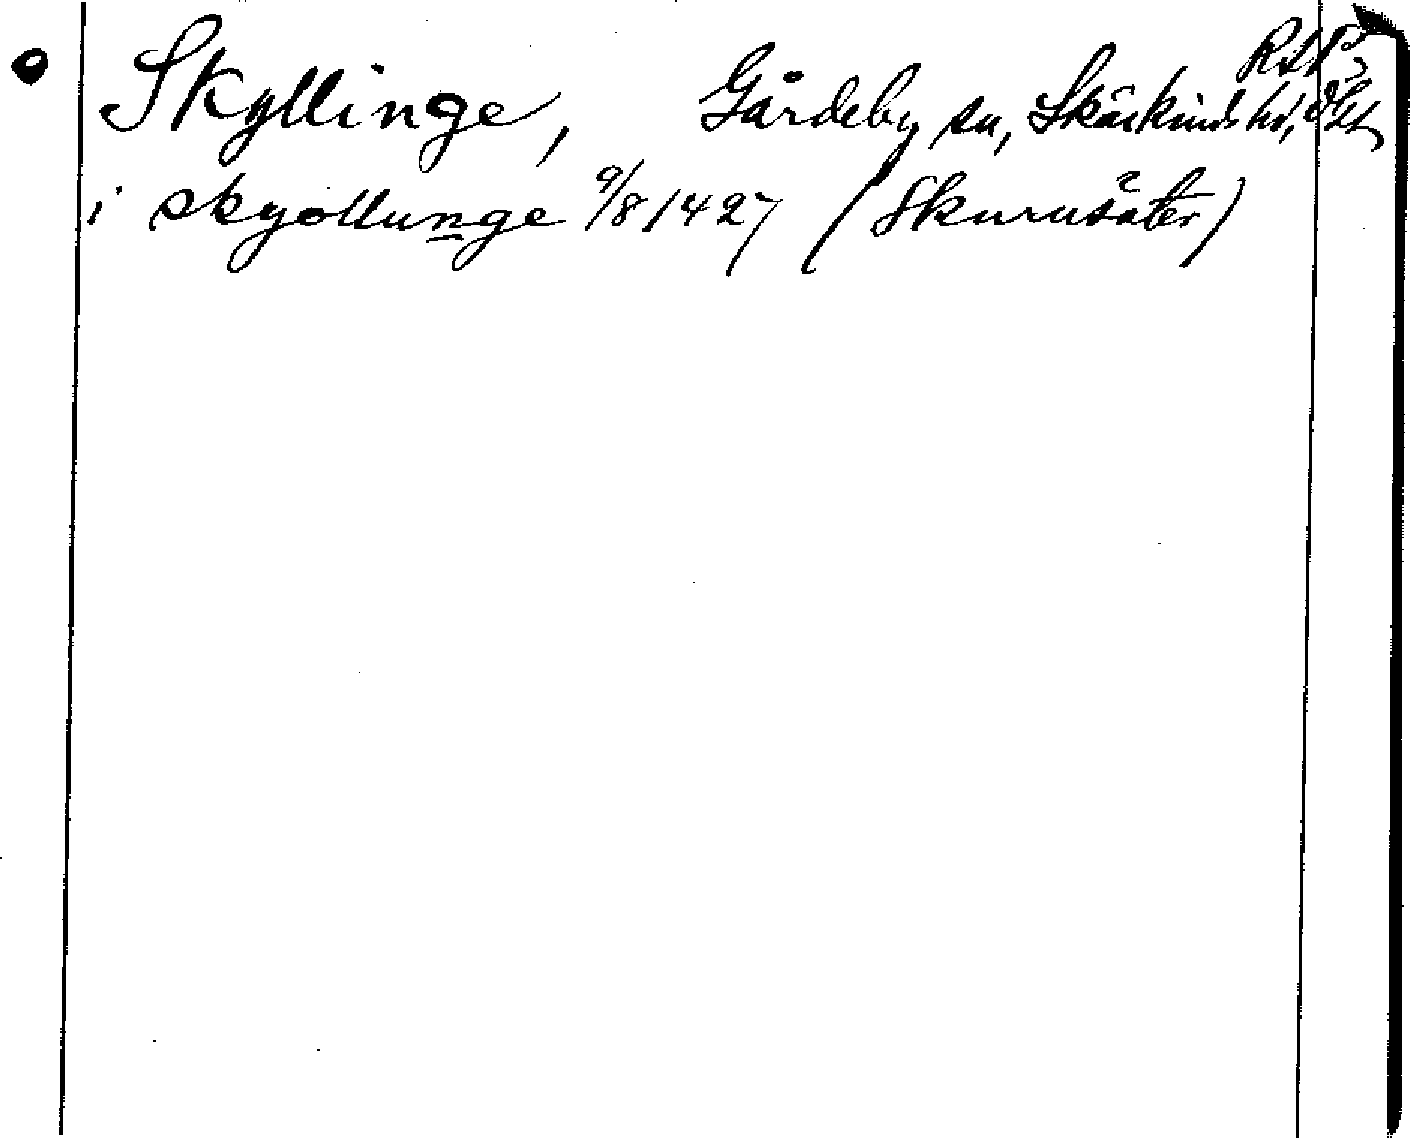 Skyllinge, Gårdeby sn, Skärkinds hd, Ögtl
i skyollunge 9/8 1427 (Skurusäter)